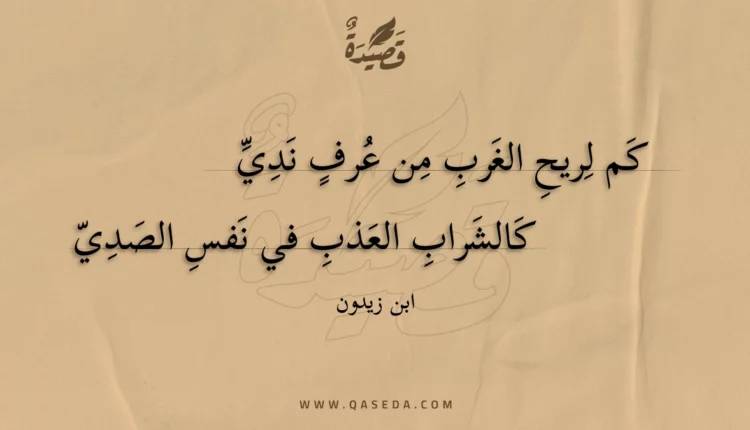 قَصِيدَةٌ
كَم لِريحِ الغَربِ مِن عُرفٍ نَدِيِّ
كَالشَرابِ العَذبِ في نَفسِ الصَدِيّ
ابن زيدون
WWW.QASEDA.COM